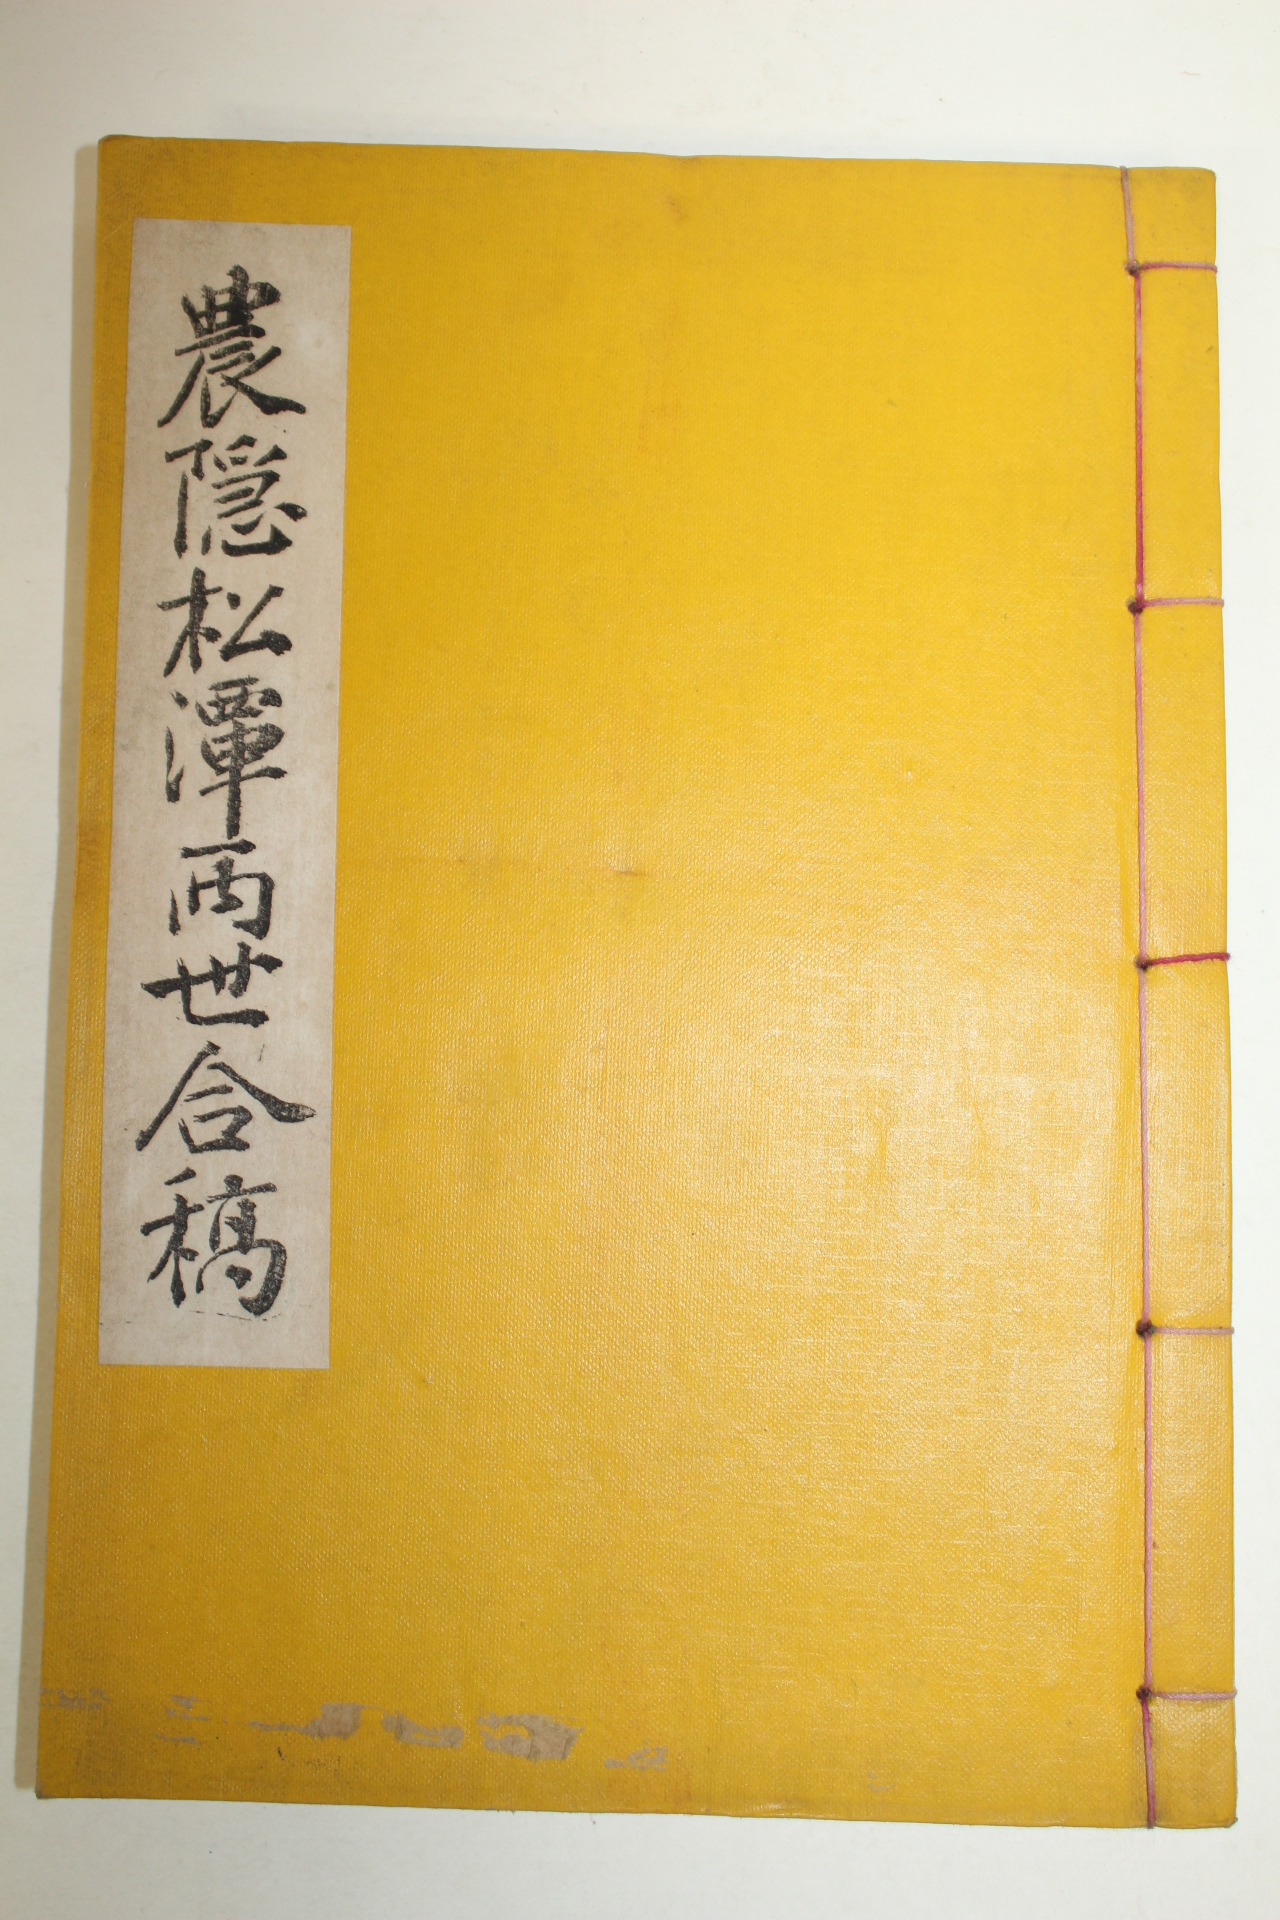 農隱松潭兩世合稿